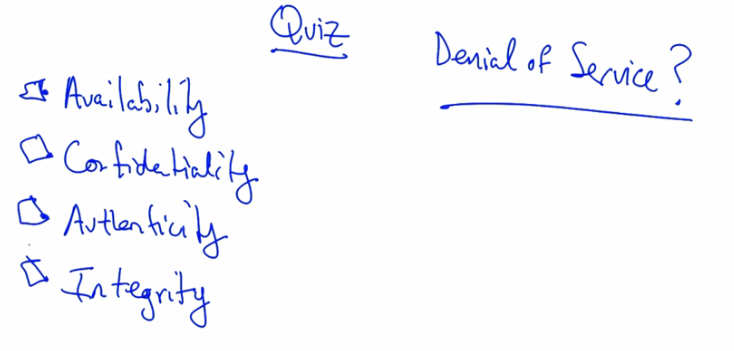 Quiz
Denial of Service?
Availability
Confidentiality
Authenticity
Integrity